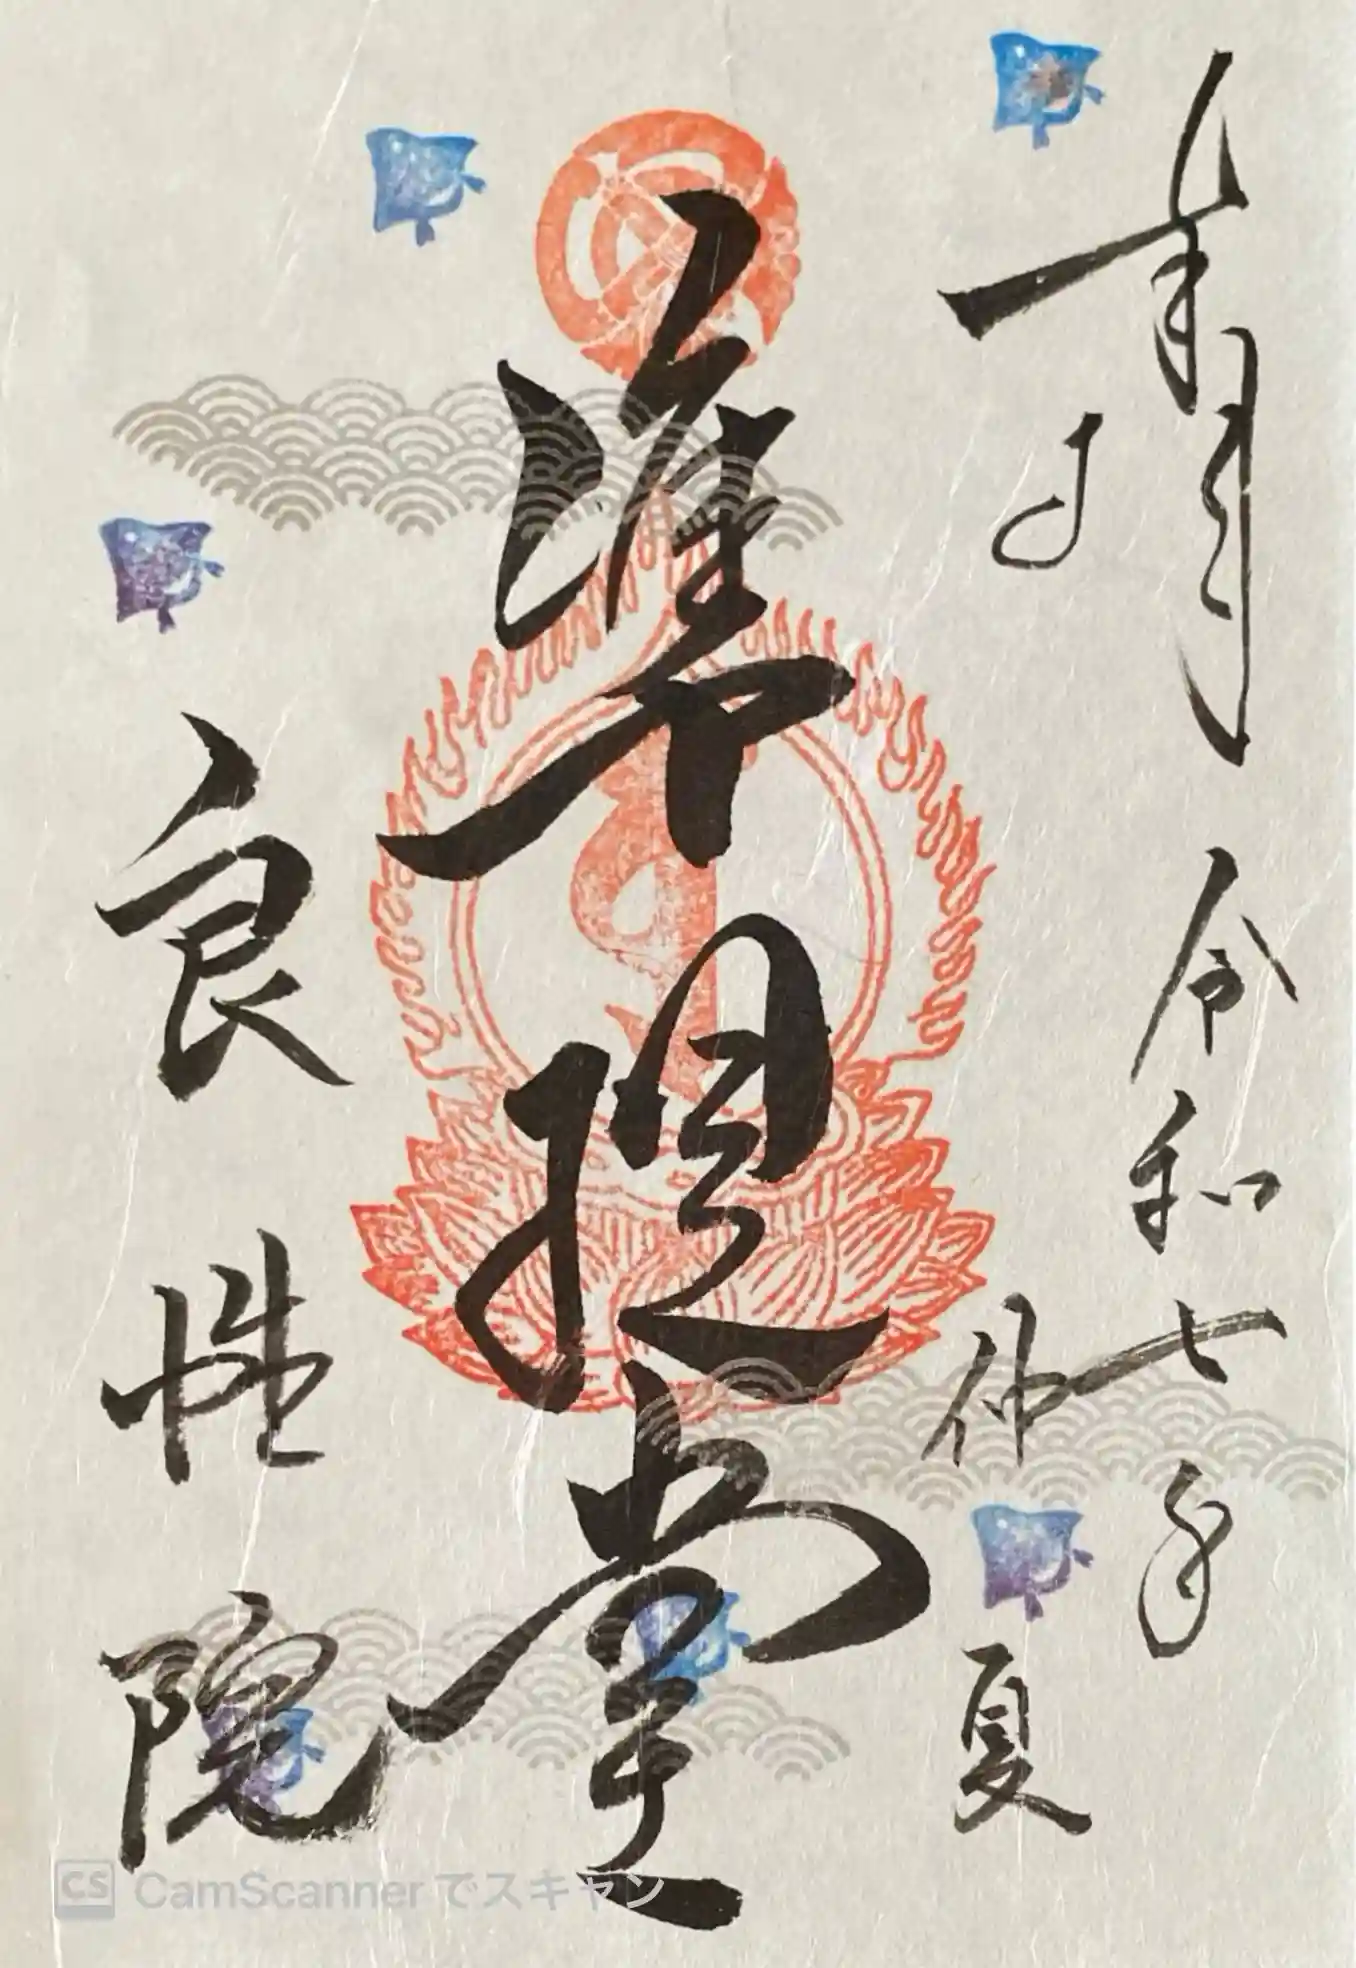 奉拝
令和七年
仲夏
準提堂
良性院
CS CamScanner でスキャン